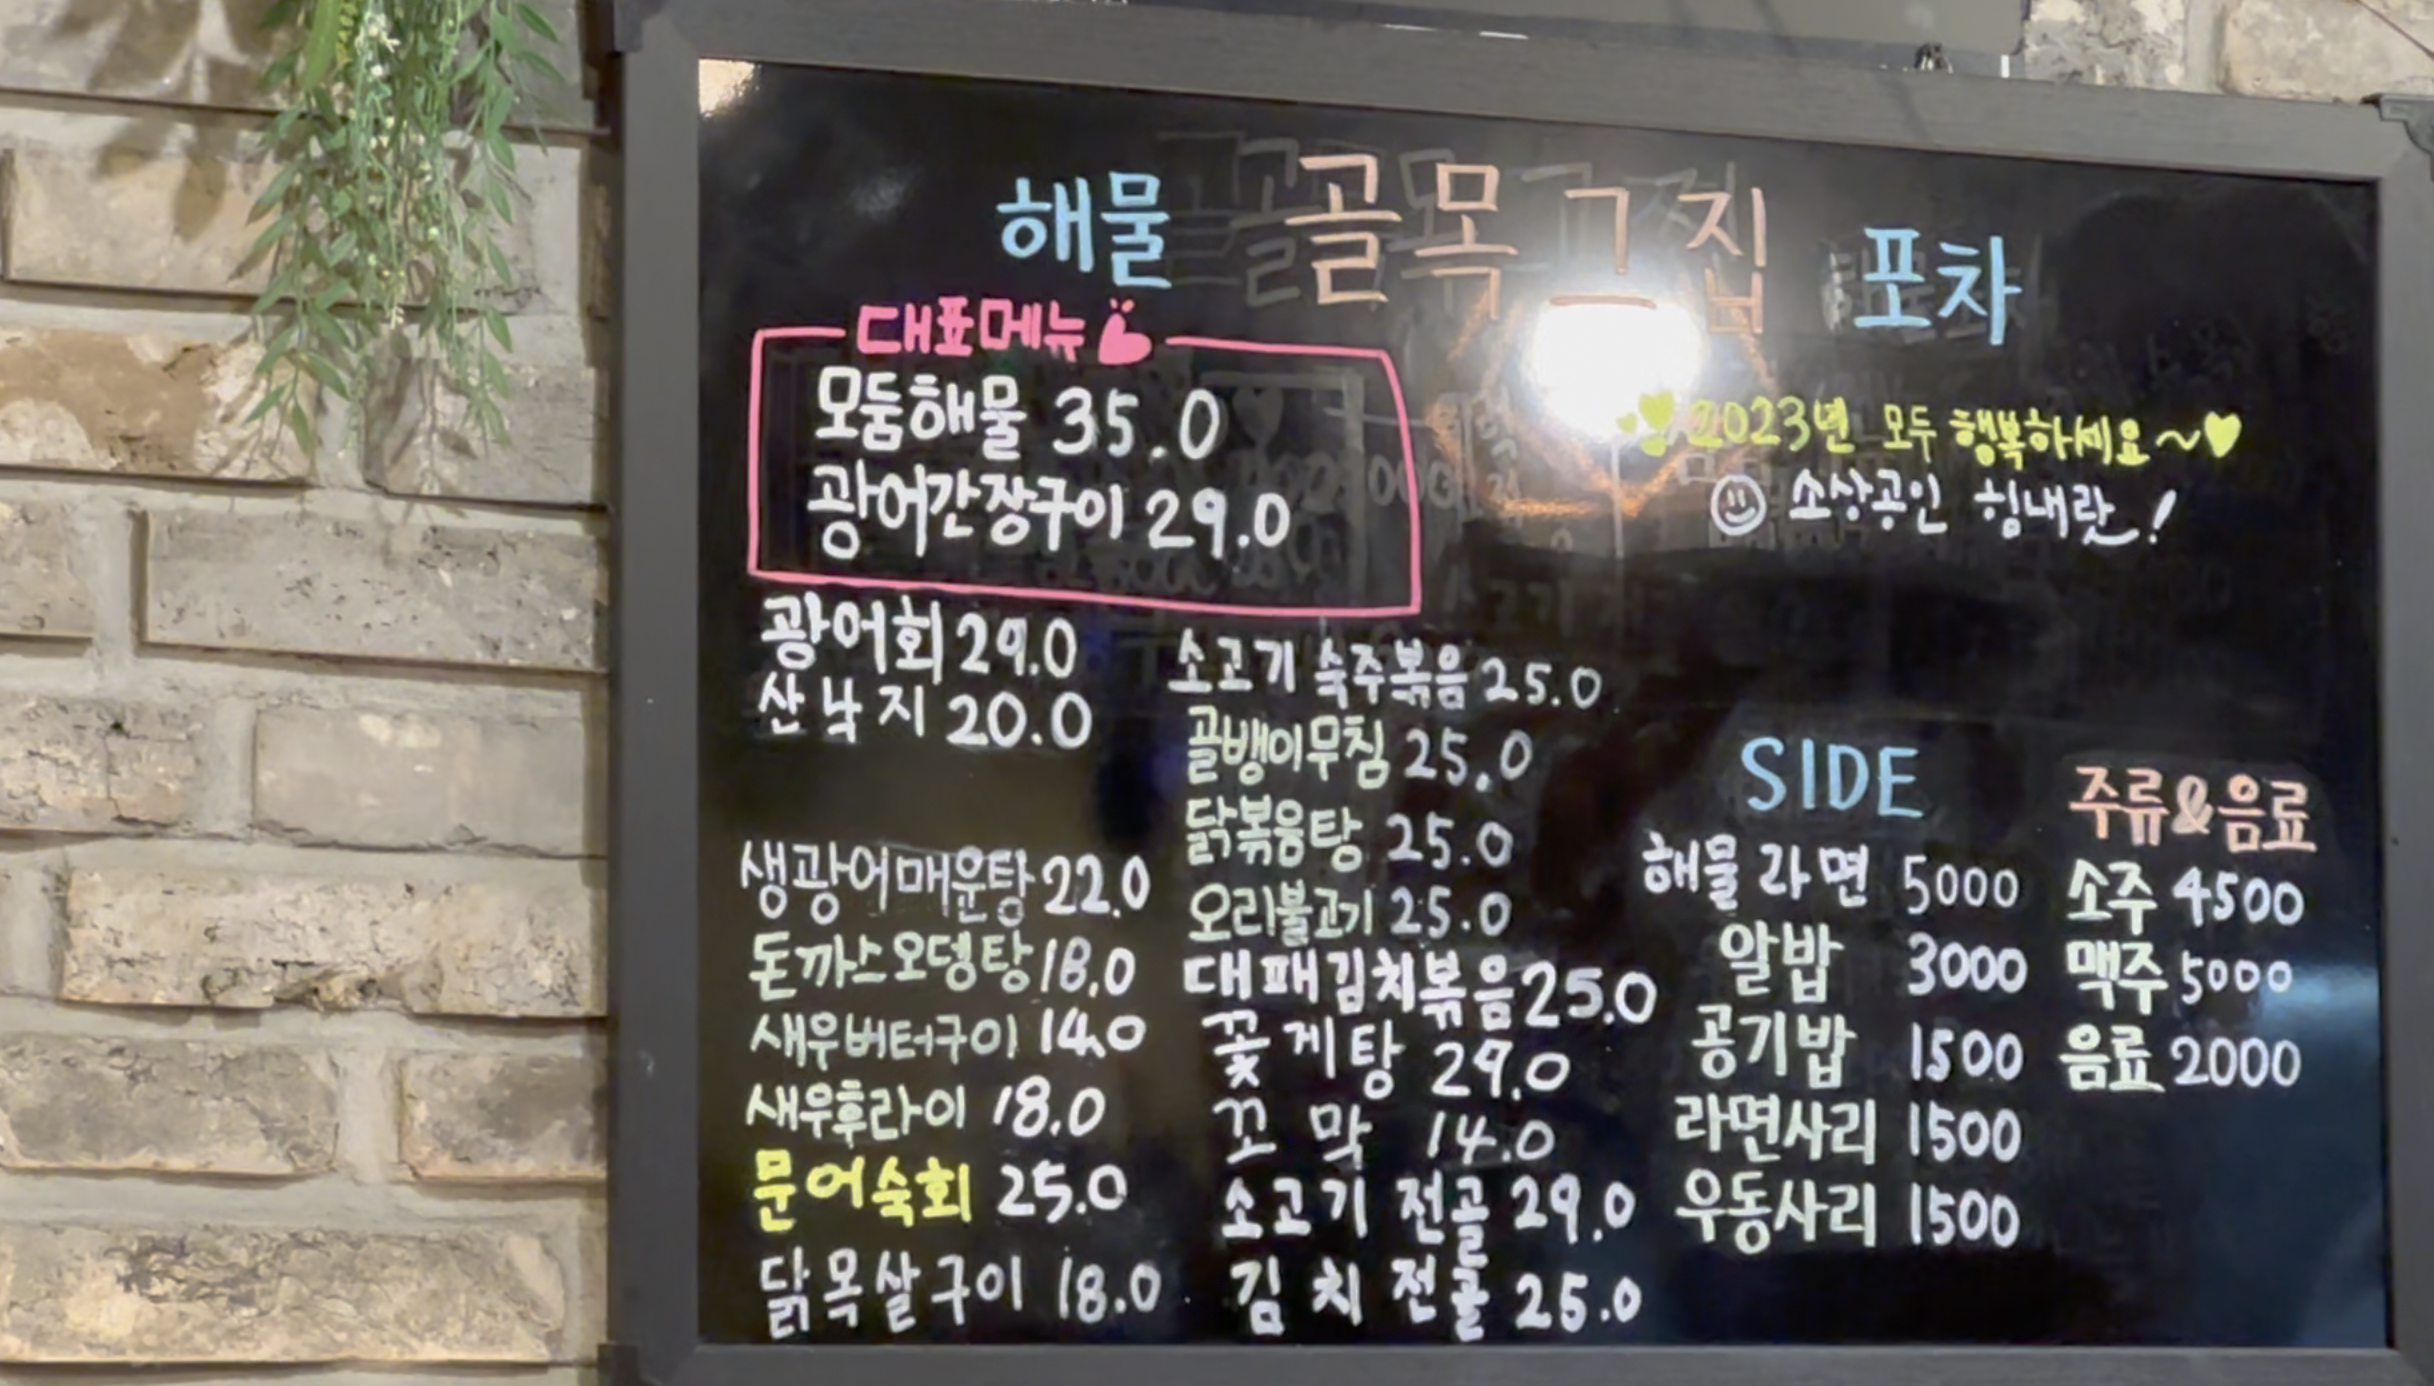 해물 골목그집 포차
대표메뉴
모둠해물 35.0
광어간장구이 29.0
2023년 모두 행복하세요~
소상공인 힘내랏!
광어회 29.0
산낙지 20.0
생광어매운탕 22.0
돈까스오뎅탕 18.0
새우버터구이 14.0
새우후라이 18.0
문어숙회 25.0
닭목살구이 18.0
소고기 숙주볶음 25.0
골뱅이무침 25.0
닭볶음탕 25.0
오리불고기 25.0
대패김치볶음 25.0
꽃게탕 29.0
꼬막 14.0
소고기 전골 29.0
김치전골 25.0
SIDE
해물라면 5000
알밥 3000
공기밥 1500
라면사리 1500
우동사리 1500
주류&음료
소주 4500
맥주 5000
음료 2000